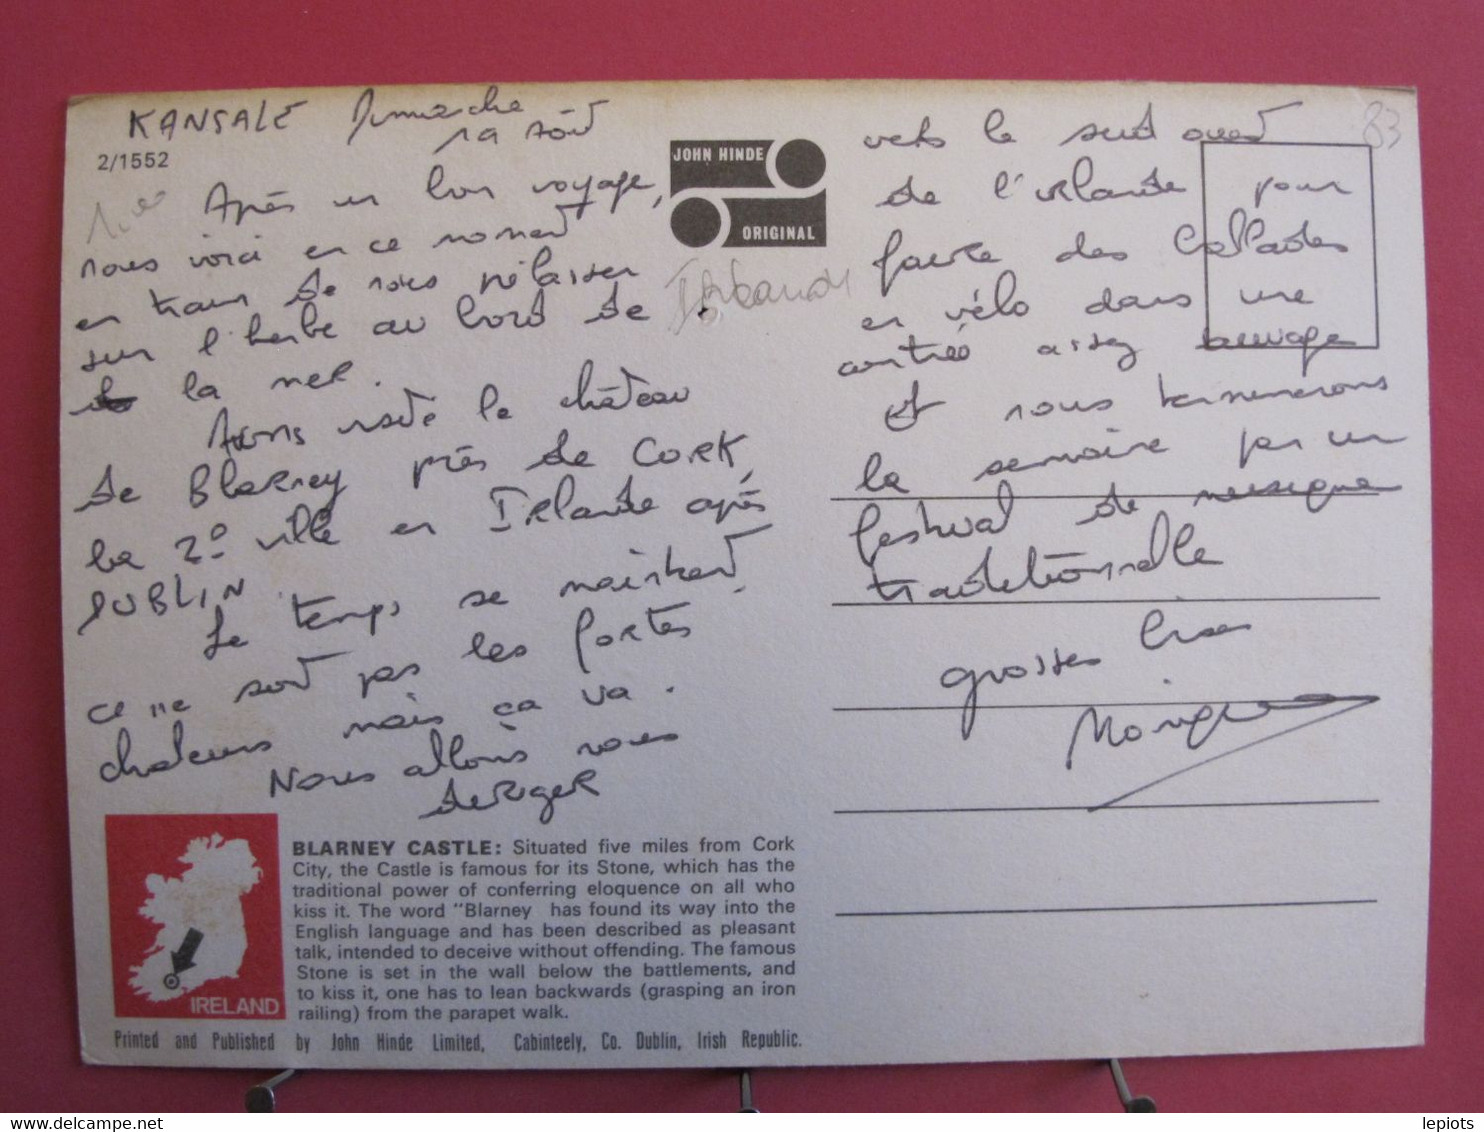 KANSALE Dimanche
soir
2/1552
Après un bon voyage,
nous voici en ce moment
en train de nous prélasser
sur l'herbe au bord de
la mer.
Avons visité le château
de Blarney près de CORK,
la 2e ville en IRlande après
DUBLIN.
Le temps se maintient
ce ne sont pas les fortes
chaleurs mais ça va.
Nous allons nous
deRigeR
JOHN HINDE
ORIGINAL
83
vers le sud ouest
de l'irlande pour
faire des ballades
en vélo dans une
contrée assez sauvage
et nous terminerons
la semaine par un
festival de musique
traditionnelle
grosses bises
Monique
BLARNEY CASTLE: Situated five miles from Cork
City, the Castle is famous for its Stone, which has the
traditional power of conferring eloquence on all who
kiss it. The word "Blarney has found its way into the
English language and has been described as pleasant
talk, intended to deceive without offending. The famous
Stone is set in the wall below the battlements, and
to kiss it, one has to lean backwards (grasping an iron
railing) from the parapet walk.
IRELAND
Printed and Published by John Hinde Limited, Cabinteely, Co. Dublin, Irish Republic.
delcampe.net
lepiots